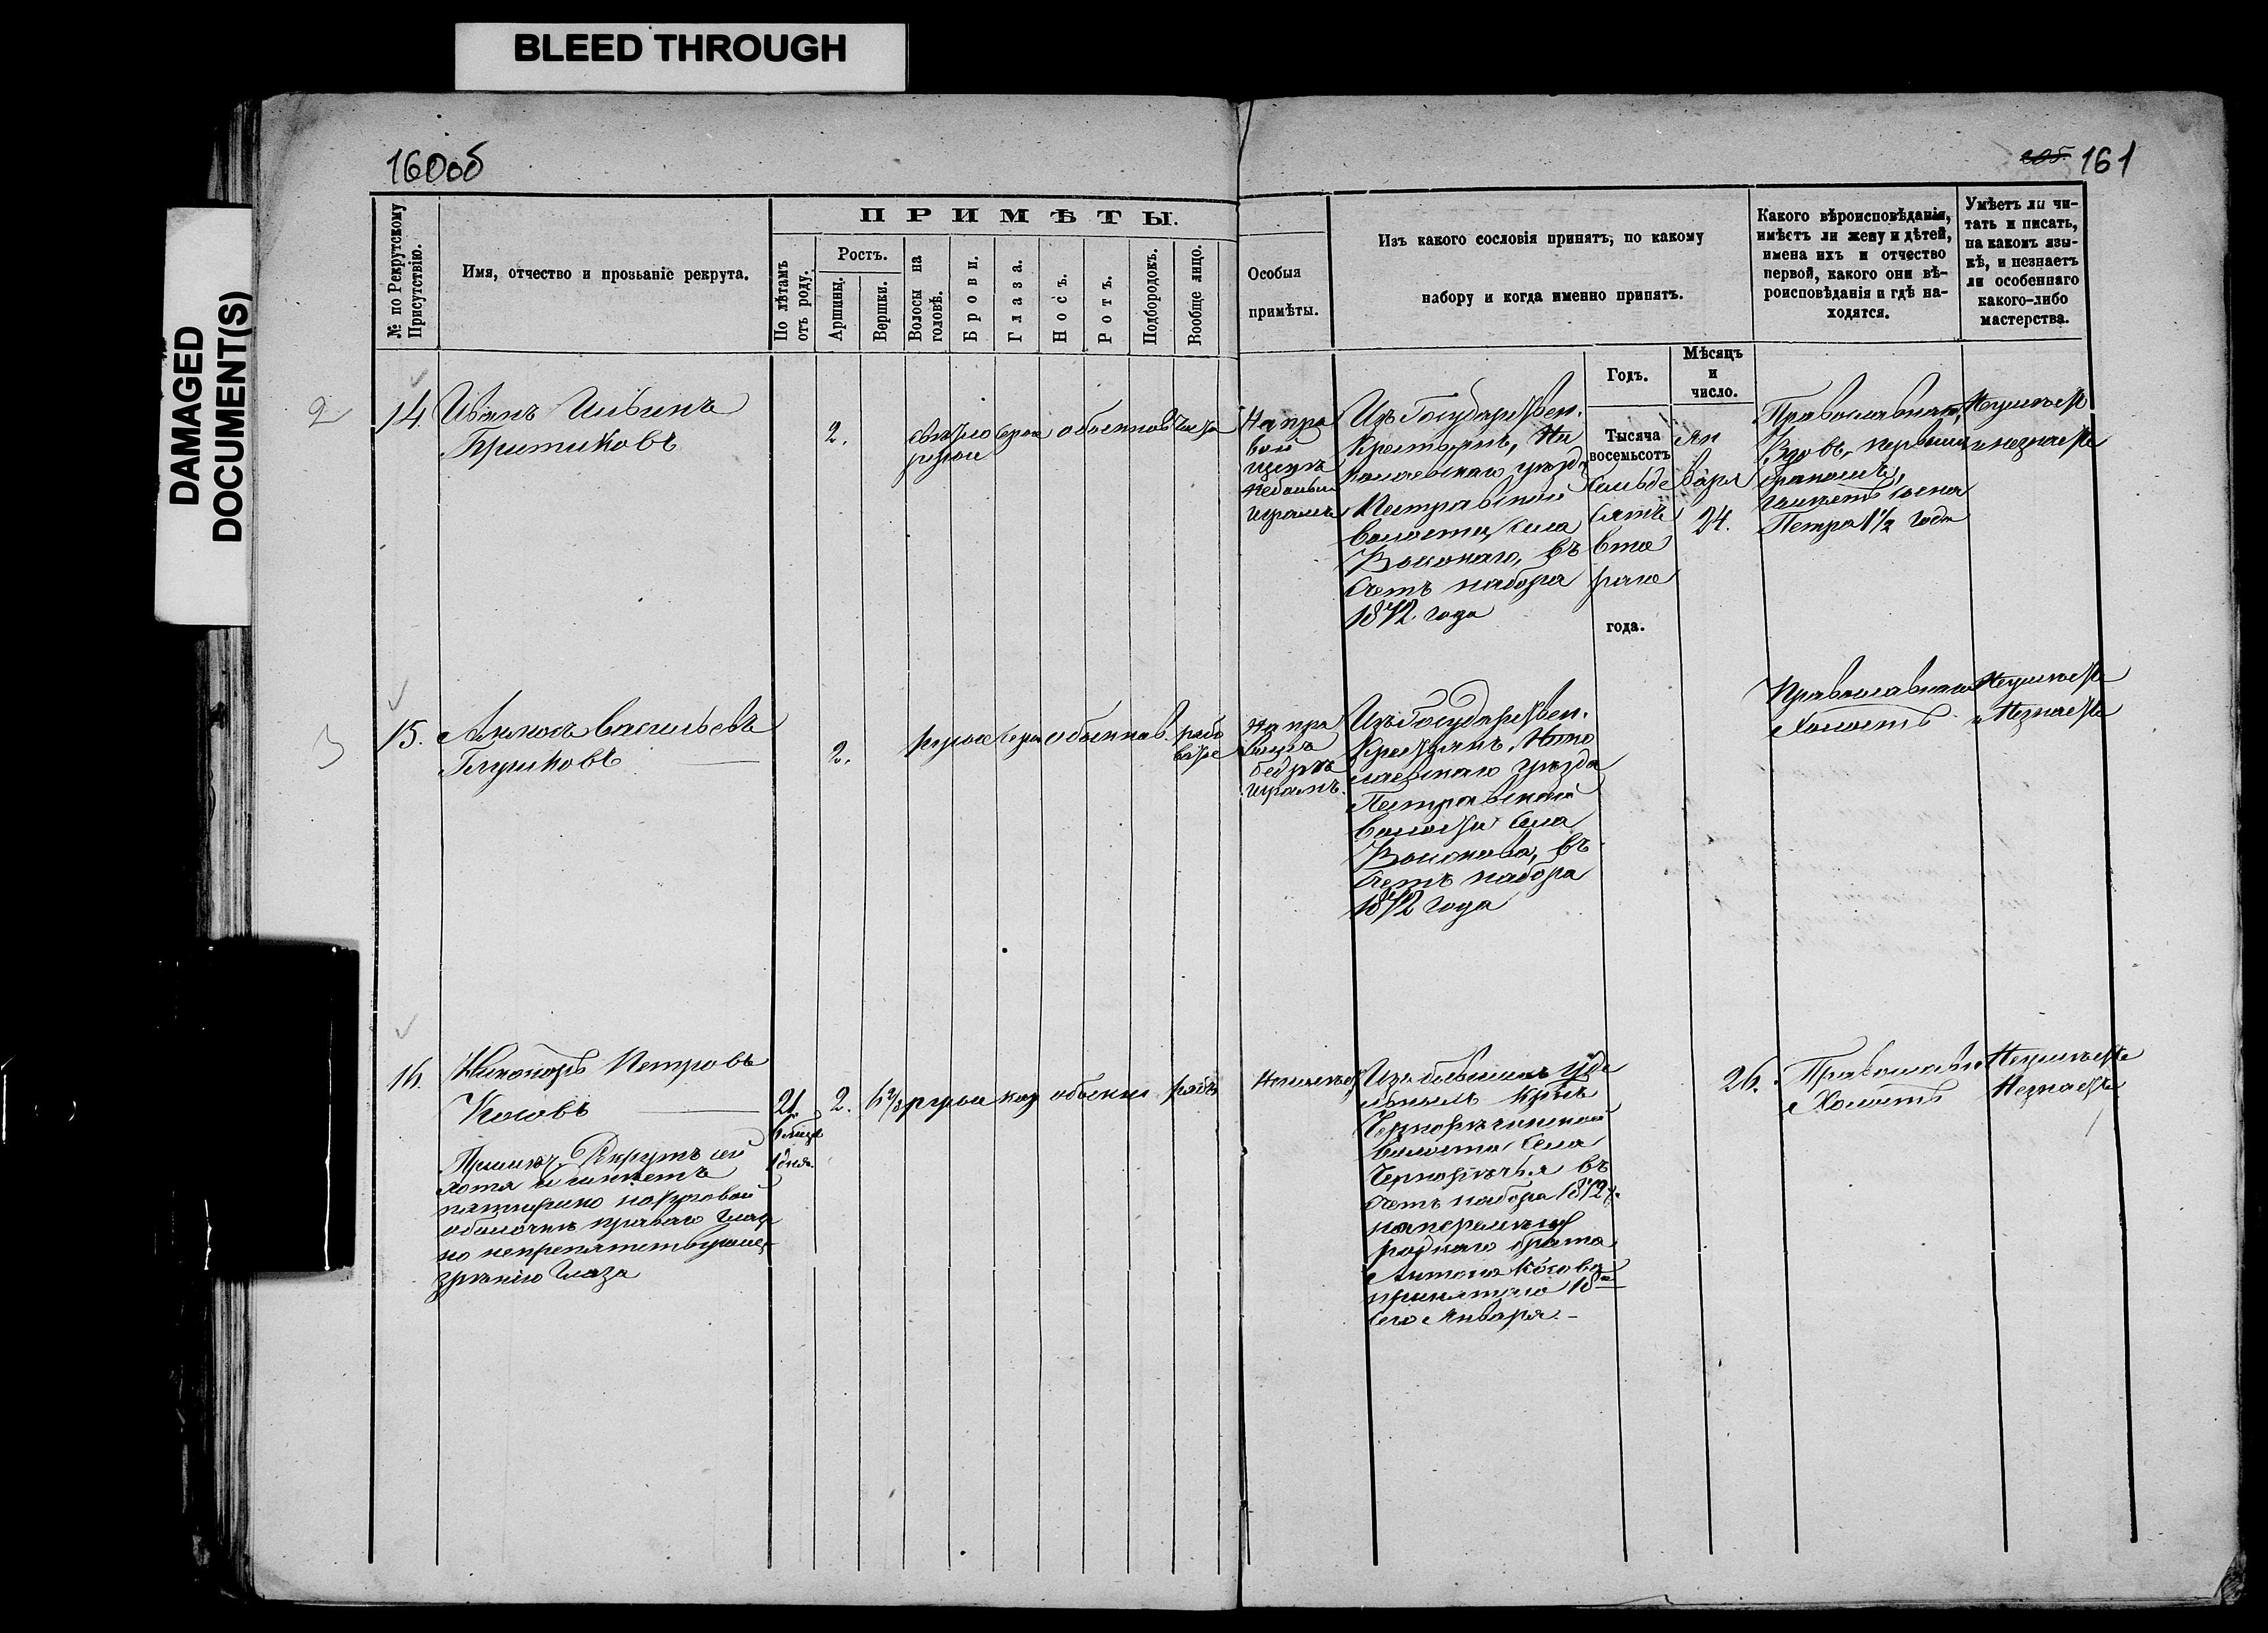 BLEED THROUGH
DAMAGED
DOCUMENT(S)
160об
205. 161
№ по Рекрутскому Присутствію.
Имя, отчество и прозьаніе рекрута.
ПРИМѢТЫ.
По лѣтамъ отъ роду.
Ростъ.
Аршины.
Вершки.
Волосы на головѣ.
Брови.
Глаза.
Носъ.
Ротъ.
Подбородокъ.
Вообще лицо.
Особыя
примѣты.
Изъ какого сословія принятъ, по какому
набору и когда именно принятъ.
Годъ.
Мѣсяцъ
и
число.
Какого вѣроисповѣданія,
имѣетъ ли жену и дѣтей,
имена ихъ и отчество
первой, какого они вѣ-
роисповѣданія и гдѣ на-
ходятся.
Умѣетъ ли чи-
тать и писать,
на какомъ язы-
кѣ, и незнаетъ
ли особеннаго
какого-либо
мастерства.
2
14.
Иванъ
2.
свѣтло
русые
сѣрые
обыкнов
чисто
На пра
вой
щекѣ
небольш
шрамъ
Изъ Государствен.
Крестьянъ, Ни
колаевскаго уѣзда
Пестравской
волости, села
въ
счетъ набора
1872 года
Тысяча
восемьсотъ
семьде
сятъ
вто
раго
года.
Ян
варя
24.
Православнаго,
Вдовъ, первымъ
бракомъ,
имѣетъ сына
Петра 1½ года
Неумѣетъ
и незнаетъ
3
15.
Васильевъ
Глушковъ
2.
русые
сѣрые
обыкнов.
рябо
ватое
На пра
вомъ
бедрѣ
шрамъ.
Изъ Государствен.
Крестьянъ, Нико
лаевскаго уѣзда
Пестравской
волости села
въ
счетъ набора
1872 года
Православнаго
Холостъ
Неумѣетъ
и Незнаетъ
16.
Никаноръ Петровъ
Косовъ
Примѣч. Рекрутъ сей
хотя и имѣетъ
пятнышко на роговой
оболочкѣ праваго глаза
но непрепятствующее
зрѣнію глаза
21
6 мѣся
1 день.
2.
6 2/8
русые
кар
обыкнов
рябъ
Неимѣетъ
Изъ бывшихъ удѣ
льныхъ крѣнъ
Чернорѣченской
волости села
Чернорѣчья въ
счетъ набора 1872 г.
на перемѣну
роднаго брата
Антона Косова
принятаго 18го
сего Января.
26.
Православн
Холостъ
Неумѣетъ
Незнаетъ